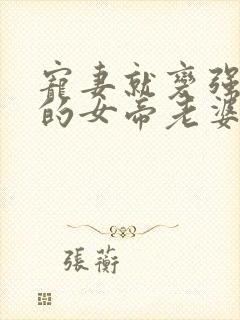 寵妻就變強
的女帝老婆
張蘅